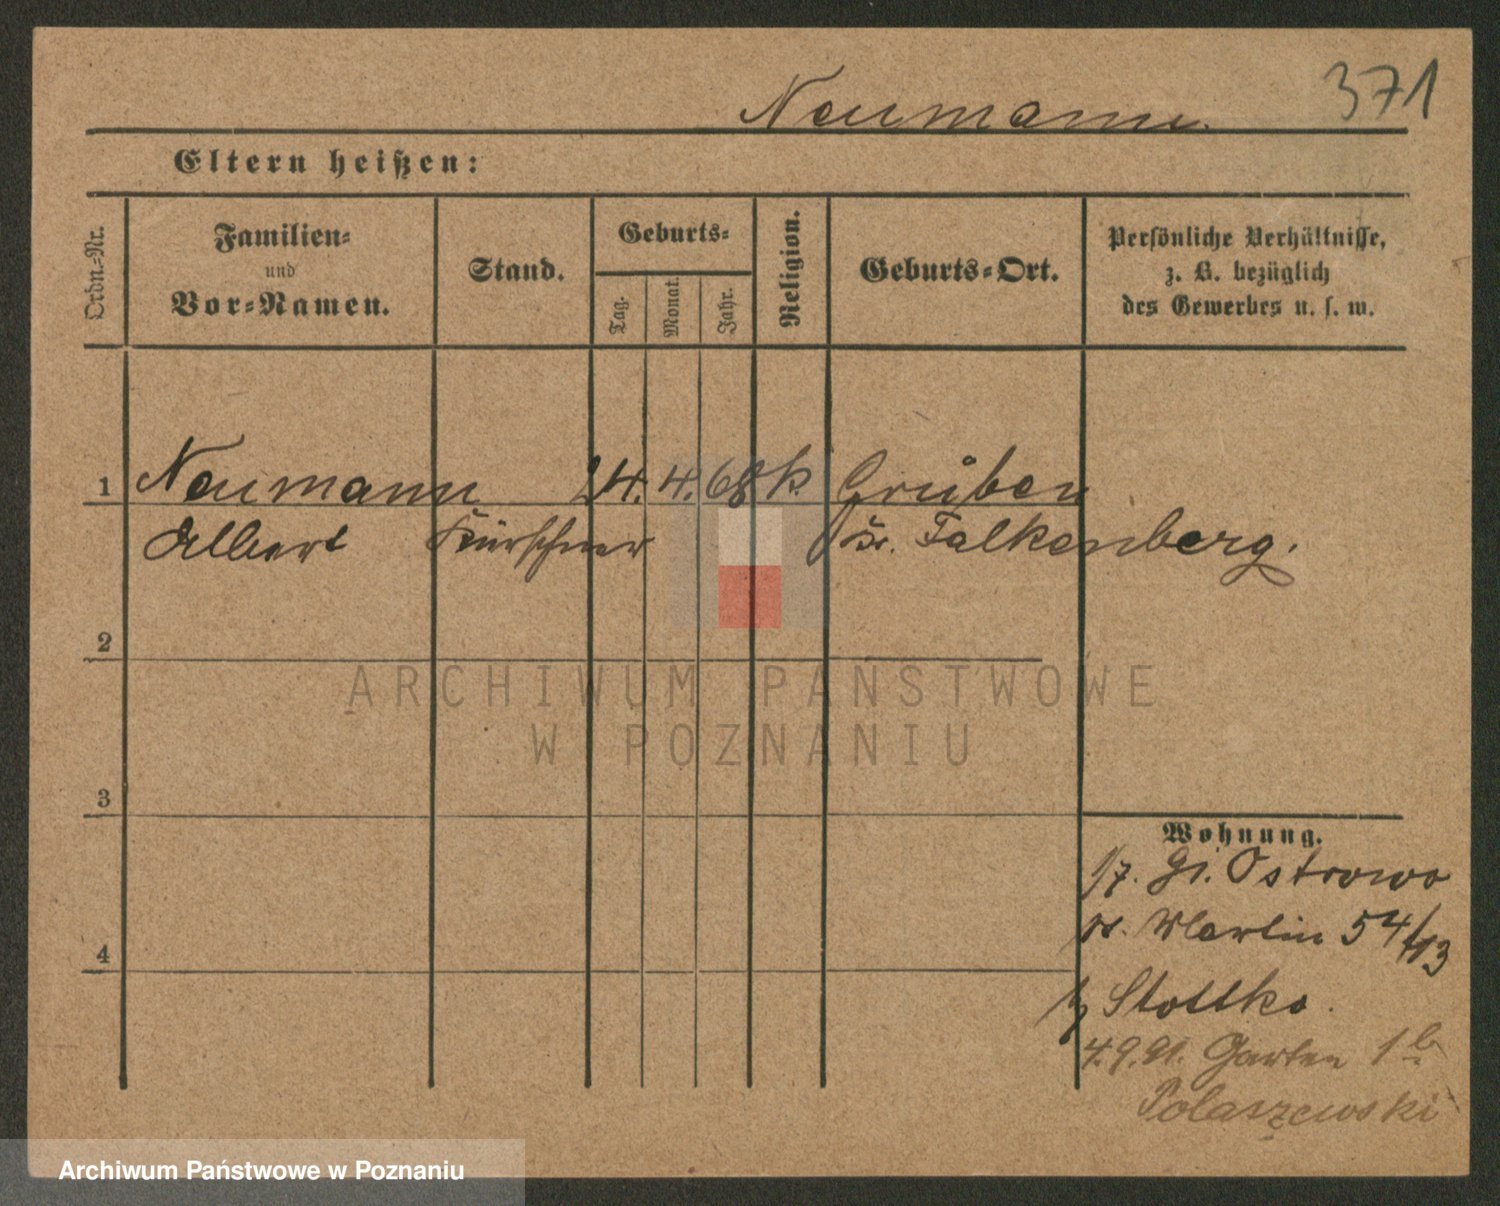 371
Neumann.
Eltern heißen:
Ordn.-Nr.
Familien-
und
Vor-Namen.
Stand.
Geburts-
Tag.
Monat.
Jahr.
Religion.
Geburts-Ort.
Persönliche Verhältnisse,
z. B. bezüglich
des Gewerbes u. s. w.
1 Neumann 24. 4. 68 k Grüben
Albert Kürschner Kr. Falkenberg.
2
ARCHIWUM PAŃSTWOWE
W POZNANIU
3
Wohnung.
1/7. Gr. Ostrowo
St. Martin 54/
b/ Stottko.
4
4.9.91. Garten 1b
Polaszewski
Archiwum Państwowe w Poznaniu